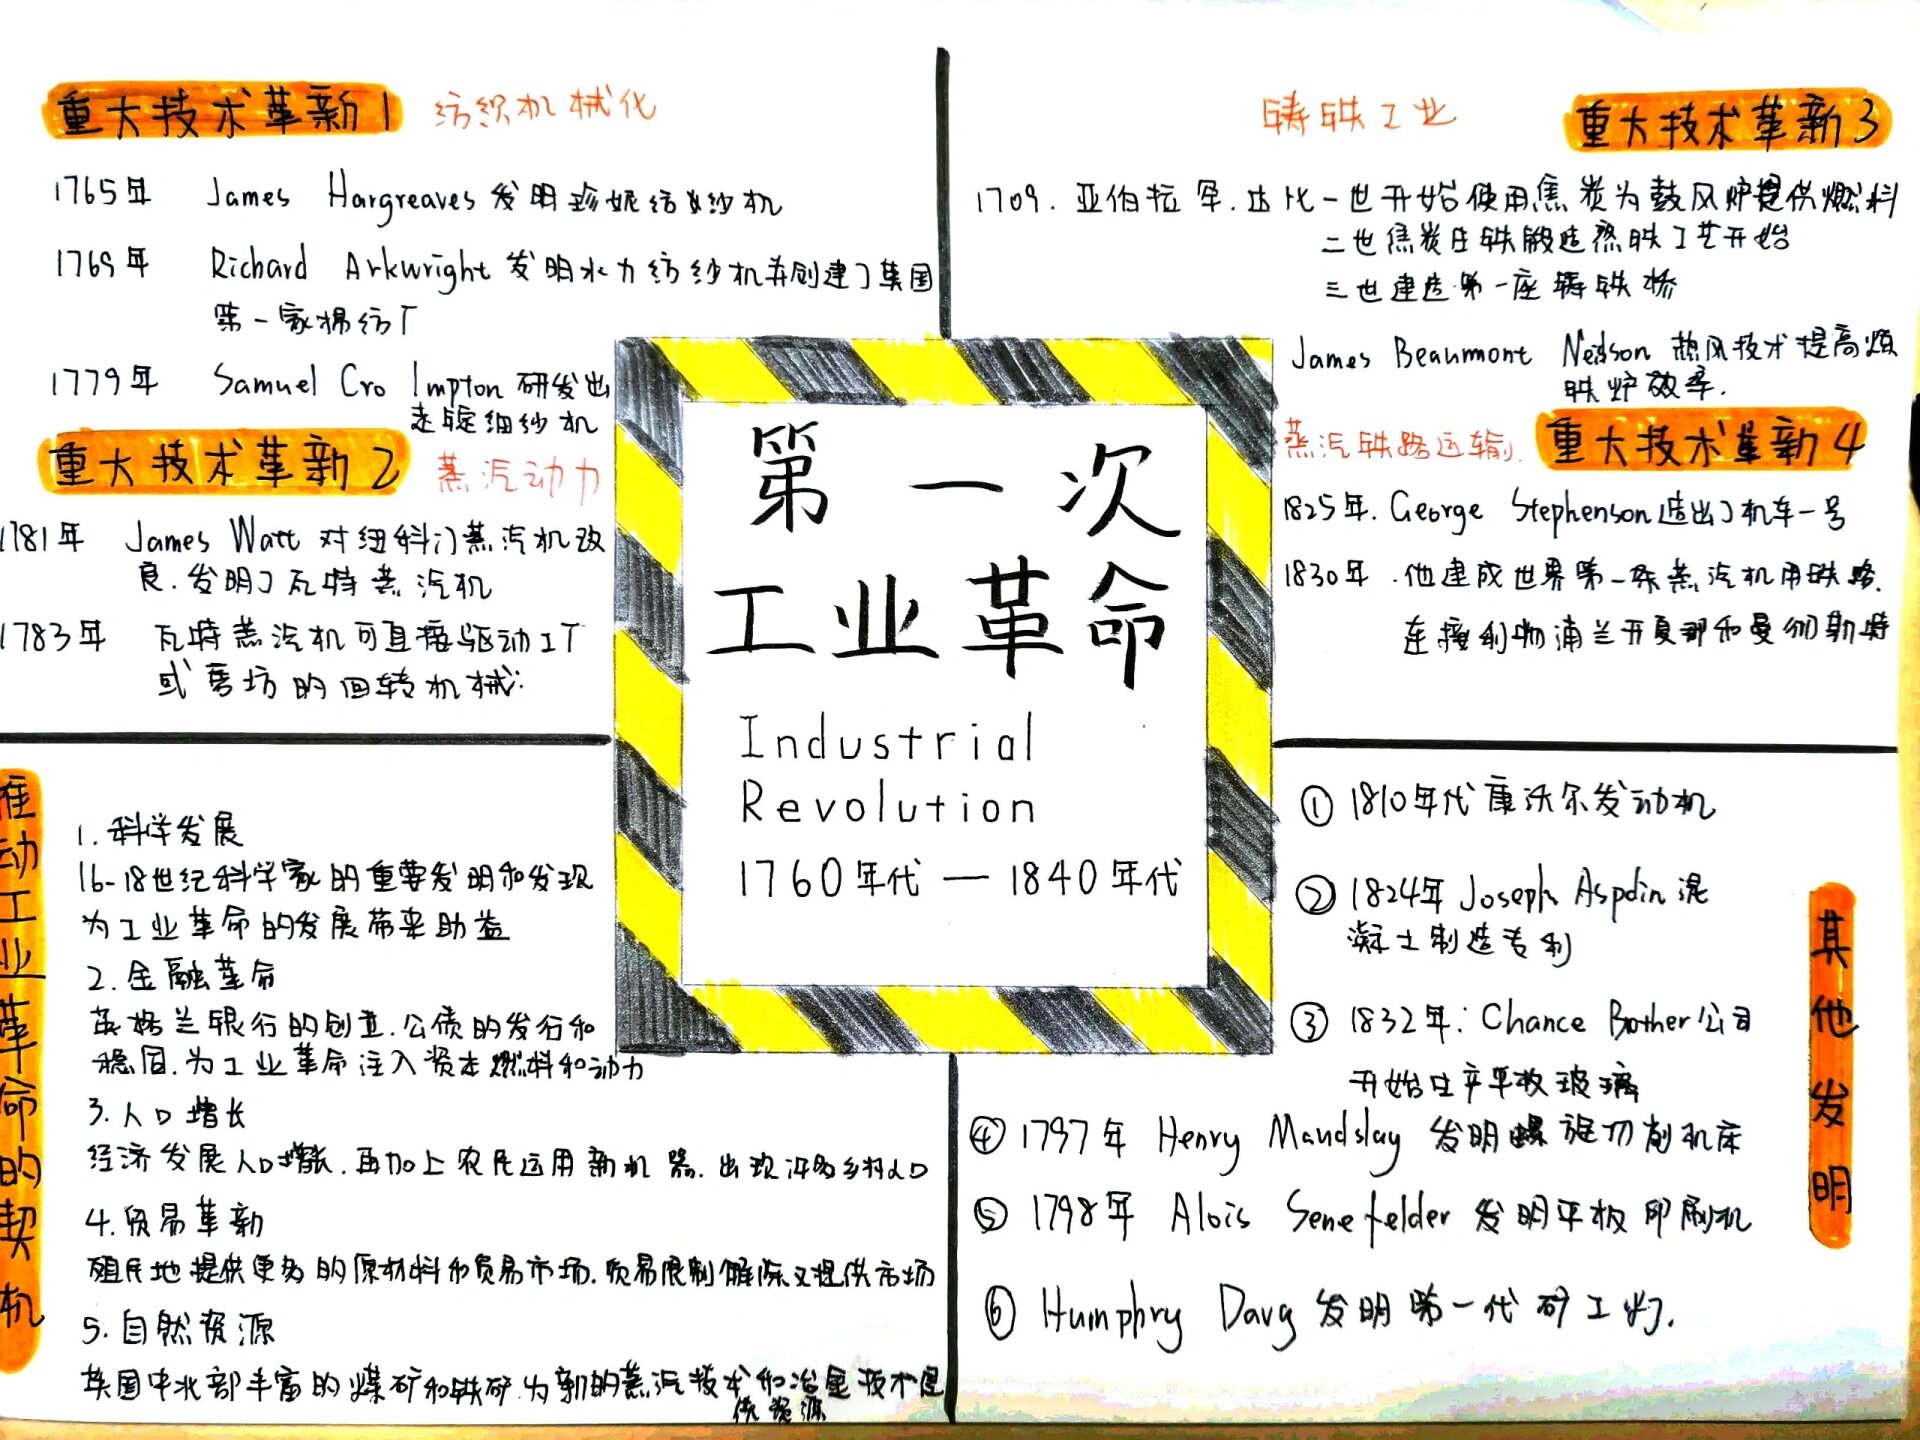 重大技术革新1 纺织机械化
1765年 James Hargreaves 发明珍妮纺纱机
1769年 Richard Arkwright 发明水力纺纱机并创建了英国
第一家棉纺厂
1779年 Samuel Cro Impton 研发出
走锭细纱机
重大技术革新2 蒸汽动力
1781年 James Watt 对纽科门蒸汽机改
良.发明了瓦特蒸汽机
1783年 瓦特蒸汽机可直接驱动工厂
或磨坊的回转机械.
铸铁工业 重大技术革新3
1709.亚伯拉罕.达比一世开始使用焦炭为鼓风炉提供燃料
二世焦炭生铁锻造熟铁工艺开始
三世建造第一座铸铁桥
James Beaumont Neilson 热风技术提高熔
铁炉效率.
蒸汽铁路运输. 重大技术革新4
1825年.George Stephenson造出了机车一号
1830年.他建成世界第一条蒸汽机用铁路.
连接利物浦兰开夏郡和曼彻斯特
第一次
工业革命
Industrial
Revolution
1760年代—1840年代
推动工业革命的契机
1.科学发展
16-18世纪科学家的重要发明和发现
为工业革命的发展带来助益
2.金融革命
英格兰银行的创立.公债的发行和
稳固.为工业革命注入资本燃料和动力
3.人口增长
经济发展人口增长.再加上农民运用新机器.出现许多乡村人口
4.贸易革新
殖民地提供更多的原材料和贸易市场.贸易限制解除又提供市场
5.自然资源
英国中北部丰富的煤矿和铁矿.为新的蒸汽技术和冶金技术提
供资源
其他发明
① 1810年代康沃尔发动机
② 1824年 Joseph Aspdin 混
凝土制造专利
③ 1832年:Chance Bother公司
开始生产平板玻璃
④ 1797年 Henry Maudslay 发明螺旋切削机床
⑤ 1798年 Alois Senefelder 发明平板印刷机
⑥ Humphry Davy 发明第一代矿工灯.